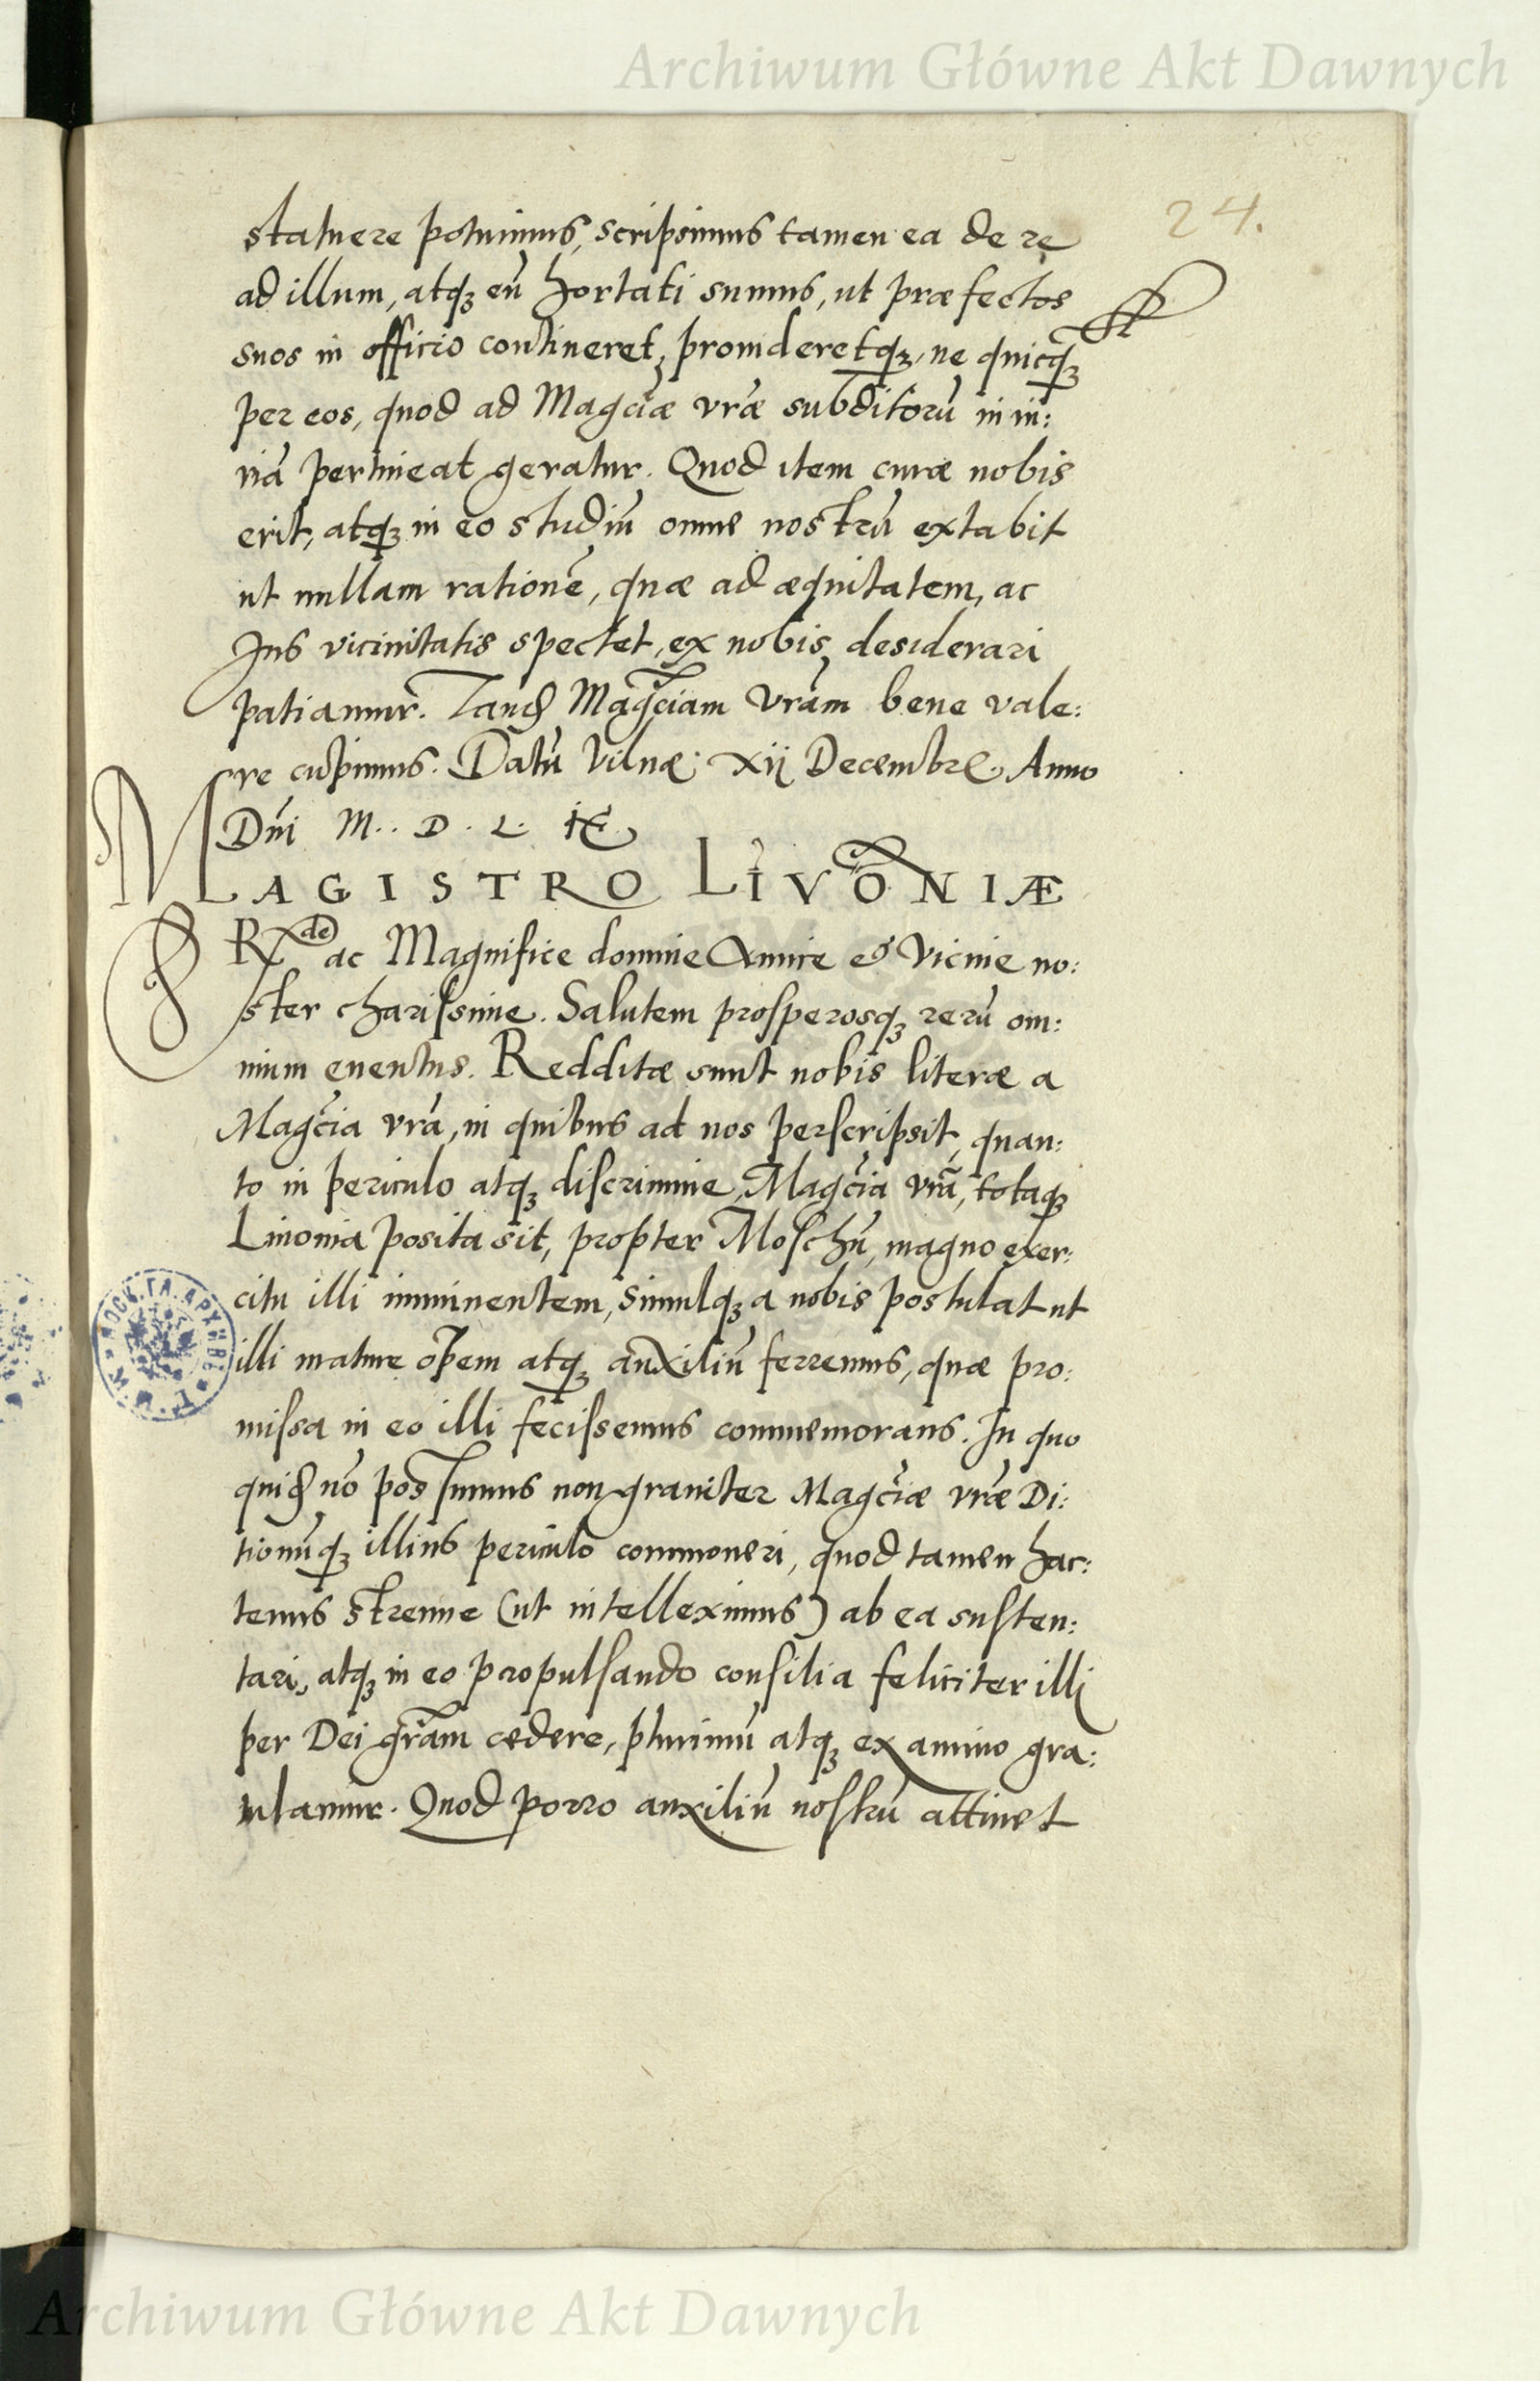 Archiwum Główne Akt Dawnych
24.
statuere potuimus, scripsimus tamen ea de re
ad illum, atqꝫ eũ hortati sumus, ut præfectos
suos in officio contineret, prouideretqꝫ, ne quicq̃ꝫ
per eos, quod ad Magc̃iæ vr̃æ subditorũ in in:
riã pertineat geratur. Quod item curæ nobis
erit, atqꝫ in eo studiũ omne nostrũ extabit
ut nullam rationẽ, quæ ad æquitatem, ac
Jus vicinitatis spectet, ex nobis desiderari
patiamur. Tandẽ Magc̃iam Vrãm bene vale:
re cupimus. Datũ Vilnæ. xij Decembr̃. Anno
Dñi M. D. L. IX.
MAGISTRO LIVONIÆ
Rde ac Magnifice domine Amice & Vicine no:
ster charissime. Salutem prosperosqꝫ rerũ om:
nium euentus. Redditæ sunt nobis literæ a
Magc̃ia vrã, in quibus ad nos perscripsit, quan:
to in periculo atqꝫ discrimine, Magc̃ia vrã, totaqꝫ
Liuonia posita sit, propter Moschũ, magno exer:
citu illi imminentem, simulqꝫ a nobis postulat ut
illi mature opem atqꝫ auxiliũ ferremus, quæ pro:
missa in eo illi fecissemus commemorans. In quo
quidẽ nõ possumus non grauiter Magc̃iæ vræ Di:
tionũqꝫ illius periculo commoueri, quod tamen hac:
tenus strenue (ut intelleximus) ab ea susten:
tari, atqꝫ in eo propulsando consilia feliciter illi
per Dei grãm cedere, plurimũ atqꝫ ex animo gra:
tulamur. Quod porro auxiliũ nostrũ attinet
МОСК. ГЛ. АРХИВЪ
Archiwum Główne Akt Dawnych